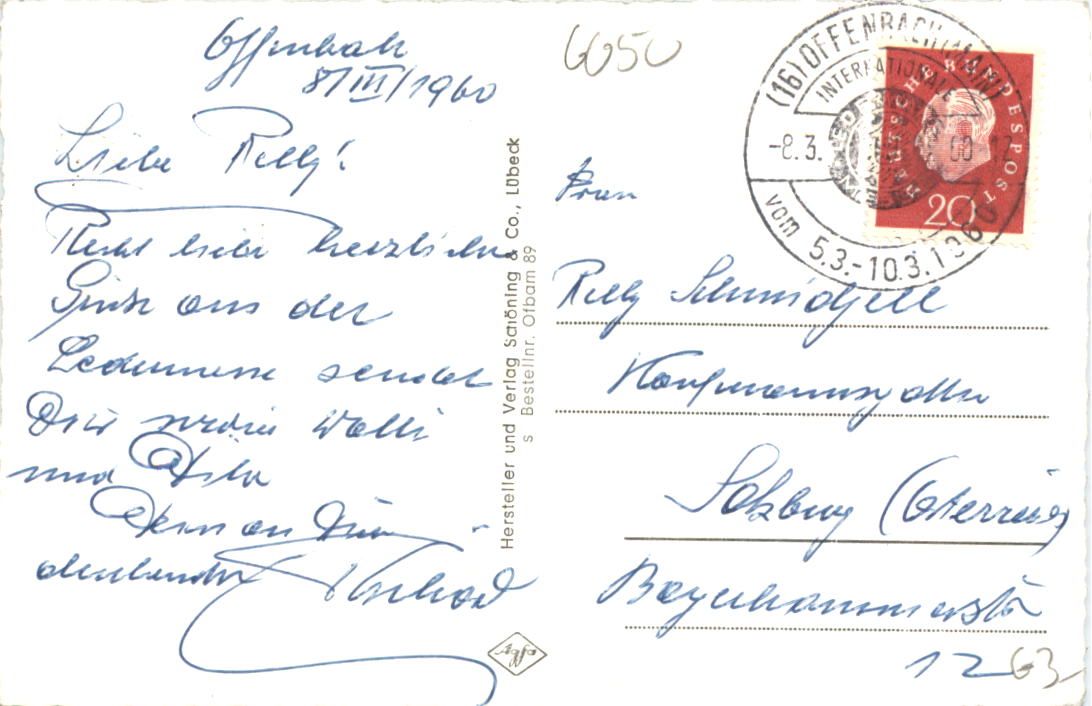 Offenbach
8/III/1960
Liebe Relly!
Recht liebe herzliche
Grüße aus der
Ledermesse sendet
Dir
und
Dein an Dich
denkender
Hersteller und Verlag Schöning & Co., Lübeck
s Bestellnr. Ofbam 89
Agfa
6050
(16) OFFENBACH (MAIN)
INTERNATIONALE
-8.3. 60 12
vom 5.3.-10.3.1960
DEUTSCHE BUNDESPOST
20
Frau
Relly Schmidjell
Salzburg (Österreich)
Bayerhammerstr
12
63